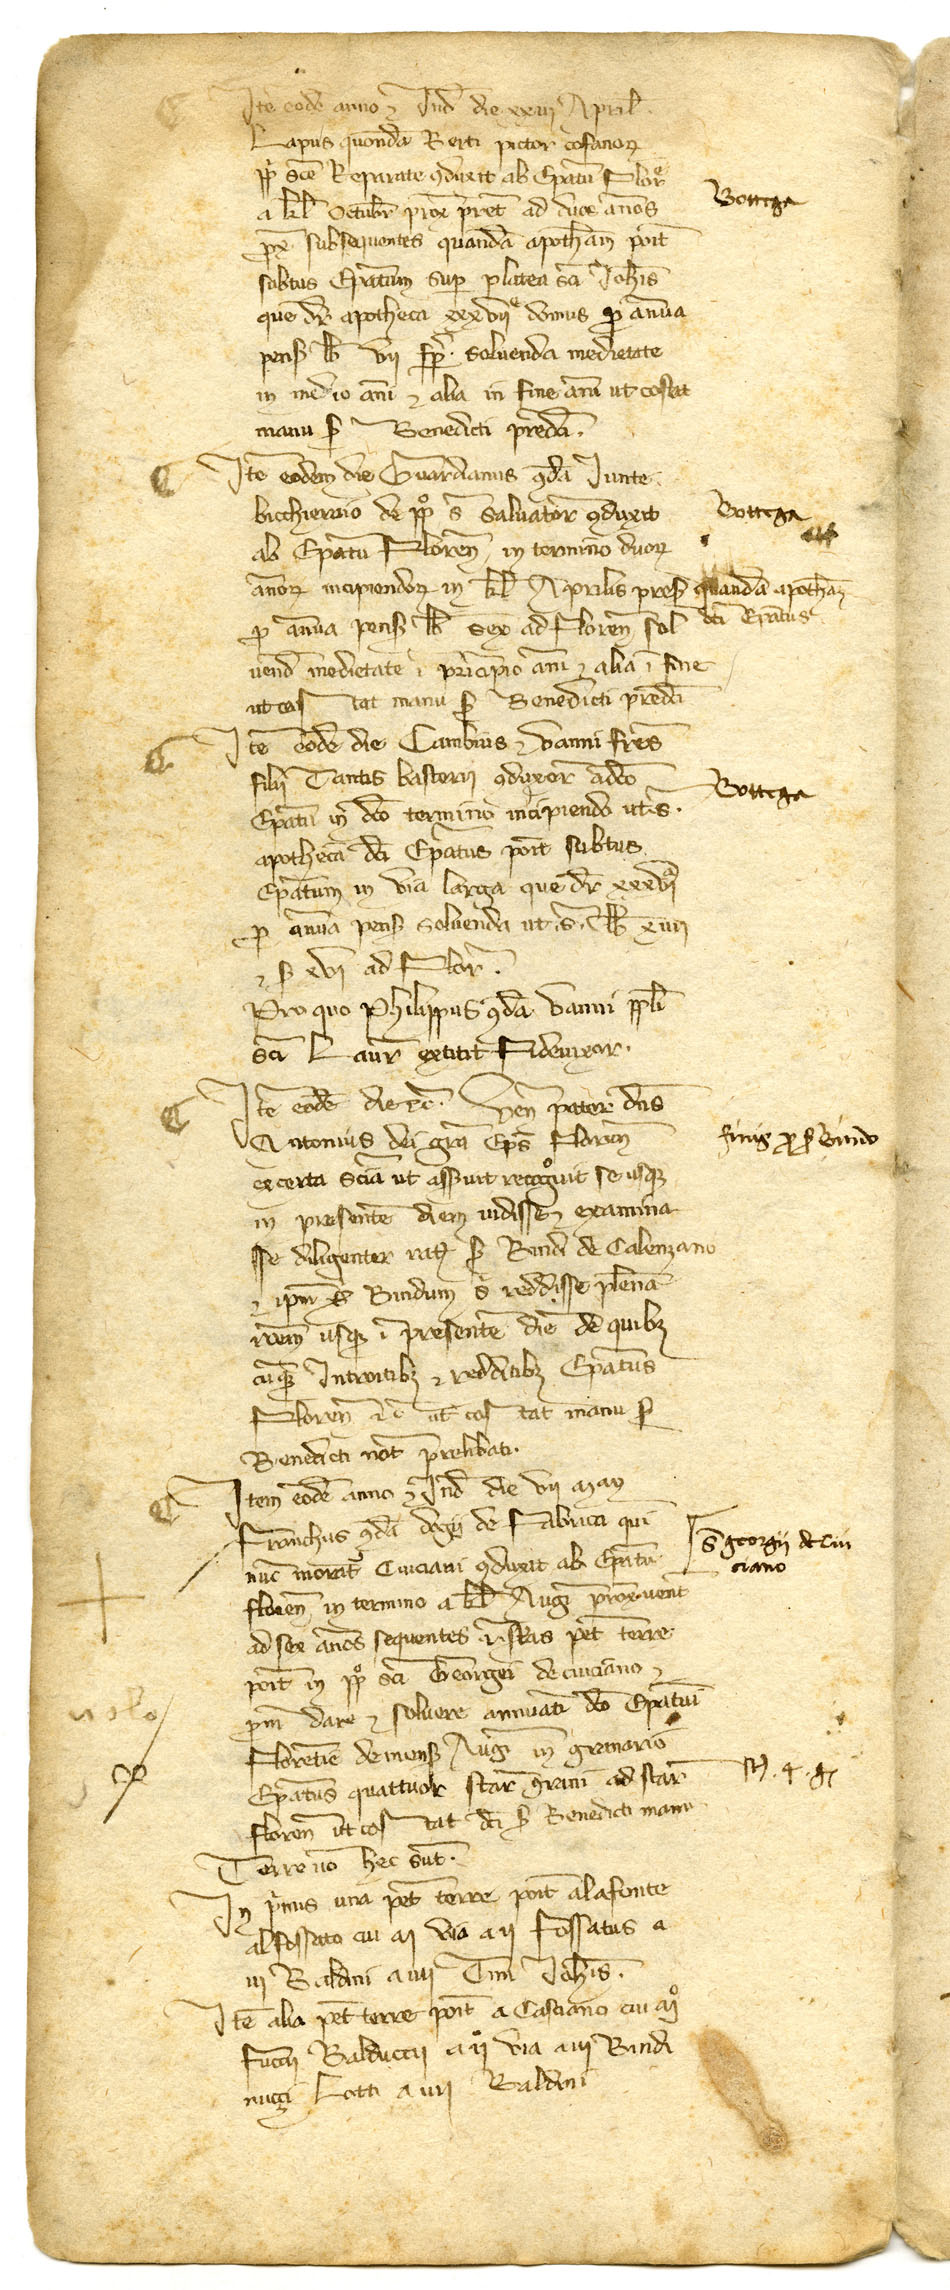 Itē eodē anno ⁊ Ind̄ die xxvii April̄.
Lapus quondā Berti pictor cofanoꝝ
pp̄ sc̄e Reparate ꝯduxit ab Ep̄atu Flor̄
a kl̄ Octubr̄ prox̄ pret̄ ad duos annos
prox̄ subsequentes quandā apothecā poīt
Bottega
subtus Ep̄atum sup̄ platea sc̄i Joh̄is
que dr̄ apotheca xxxvii domus ꝓ annua
pens̄ lb̄ vii fp̄. soluenda medietate
in medio anni ⁊ alia in fine anni ut costat
manu s̄ Benedicti predc̄i.
Itē eodem die Guardianus ꝯdā Junte
bicchieraio de pp̄o s̄ Saluator̄ ꝯduxit
Bottega
ab Ep̄atu Floren̄ in termino duoꝝ
annoꝝ incipiendoꝝ in kl̄ Aprilis pres̄ quandā apothecā
ꝓ annua pens̄ lb̄ sex ad Floren̄ sol
dc̄i Ep̄atus
uend̄ medietatē ī principio anni ⁊ alia ī fine
ut cos tat manu s̄ Benedicti predc̄i
Itē eodē die Cambius ⁊ Vanni fr̄es
filii Tantis basterii ꝯduxer̄ a dc̄o
Bottega
Ep̄atu in dc̄o termino incipiendo ut s̄.
apothecā dc̄i Ep̄atus poīt subtus
Ep̄atum in via larga que dr̄ xxxvi
ꝓ annua pens̄ soluenda ut s̄. lb̄ xiiii
⁊ s̄ xvi ad Flor̄.
Pro quo Philippus ꝯdā Vanni pp̄li
sc̄i Laur̄ extitit Fideiuxor.
Itē eodē die ⁊c̄. Ven̄ pater dn̄s
Antonius dei gr̄a Ep̄s Floren̄
finis ꝓ s̄ Bindo
ex certa sciā ut asseruit recognouit se usqꝫ
in presente diem uidisse ⁊ examina
sse diligenter rat̄ s̄ Bindi de Calenzano
⁊ ip̄m s̄ Bindum s̄ reddisse plenā
rōem usqꝫ ī presente diē de quibꝫ
cūqꝫ Introitibꝫ ⁊ redditibꝫ Ep̄atus
Floren̄ ⁊c̄ ut cos tat manu s̄
Benedicti not̄ prelibati.
Item eodē anno ⁊ Ind̄ die vii maii
Franchus ꝯdā dogii de Fabrica qui
S̄ georgii de Ciu
ciano
nūc morat̄ Ciuciani ꝯduxit ab Ep̄atu
floren̄ in termino a kl̄ Auḡ prox̄ uent̄
ad sex annos sequentes īfr̄as pet̄ terre
poīt in pp̄o sc̄i Georgii de ciuciano ⁊
prom̄ dare ⁊ soluere annuati dc̄o Ep̄atui
Florētie de mens̄ Auḡ in granario
Ep̄atus quattuor star̄ grani ad star̄
st̄. 4. gr̄
floren̄ ut cos tat dc̄i s̄ Benedicti manu
Terre uō hec sūt.
In pr̄mis una pet̄ terre poīt a la fonte
al fossato cui a i via a ii Fossatus a
iii Baldini a iiii Tini Joh̄is.
Itē alia pet̄ terre poīt a Casciano cui a i°
fucci Balduccii a ii via a iii Bindi
nucci Lotti a iiii Baldini